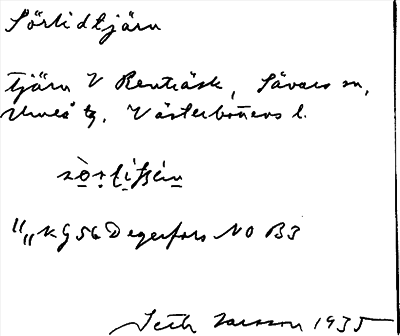 Sörlidtjärn
tjärn V Renträsk, Sävars sn,
Umeå tg, Västerbottens l.
KG56 Degerfors NO B3
Seth Larsson 1935